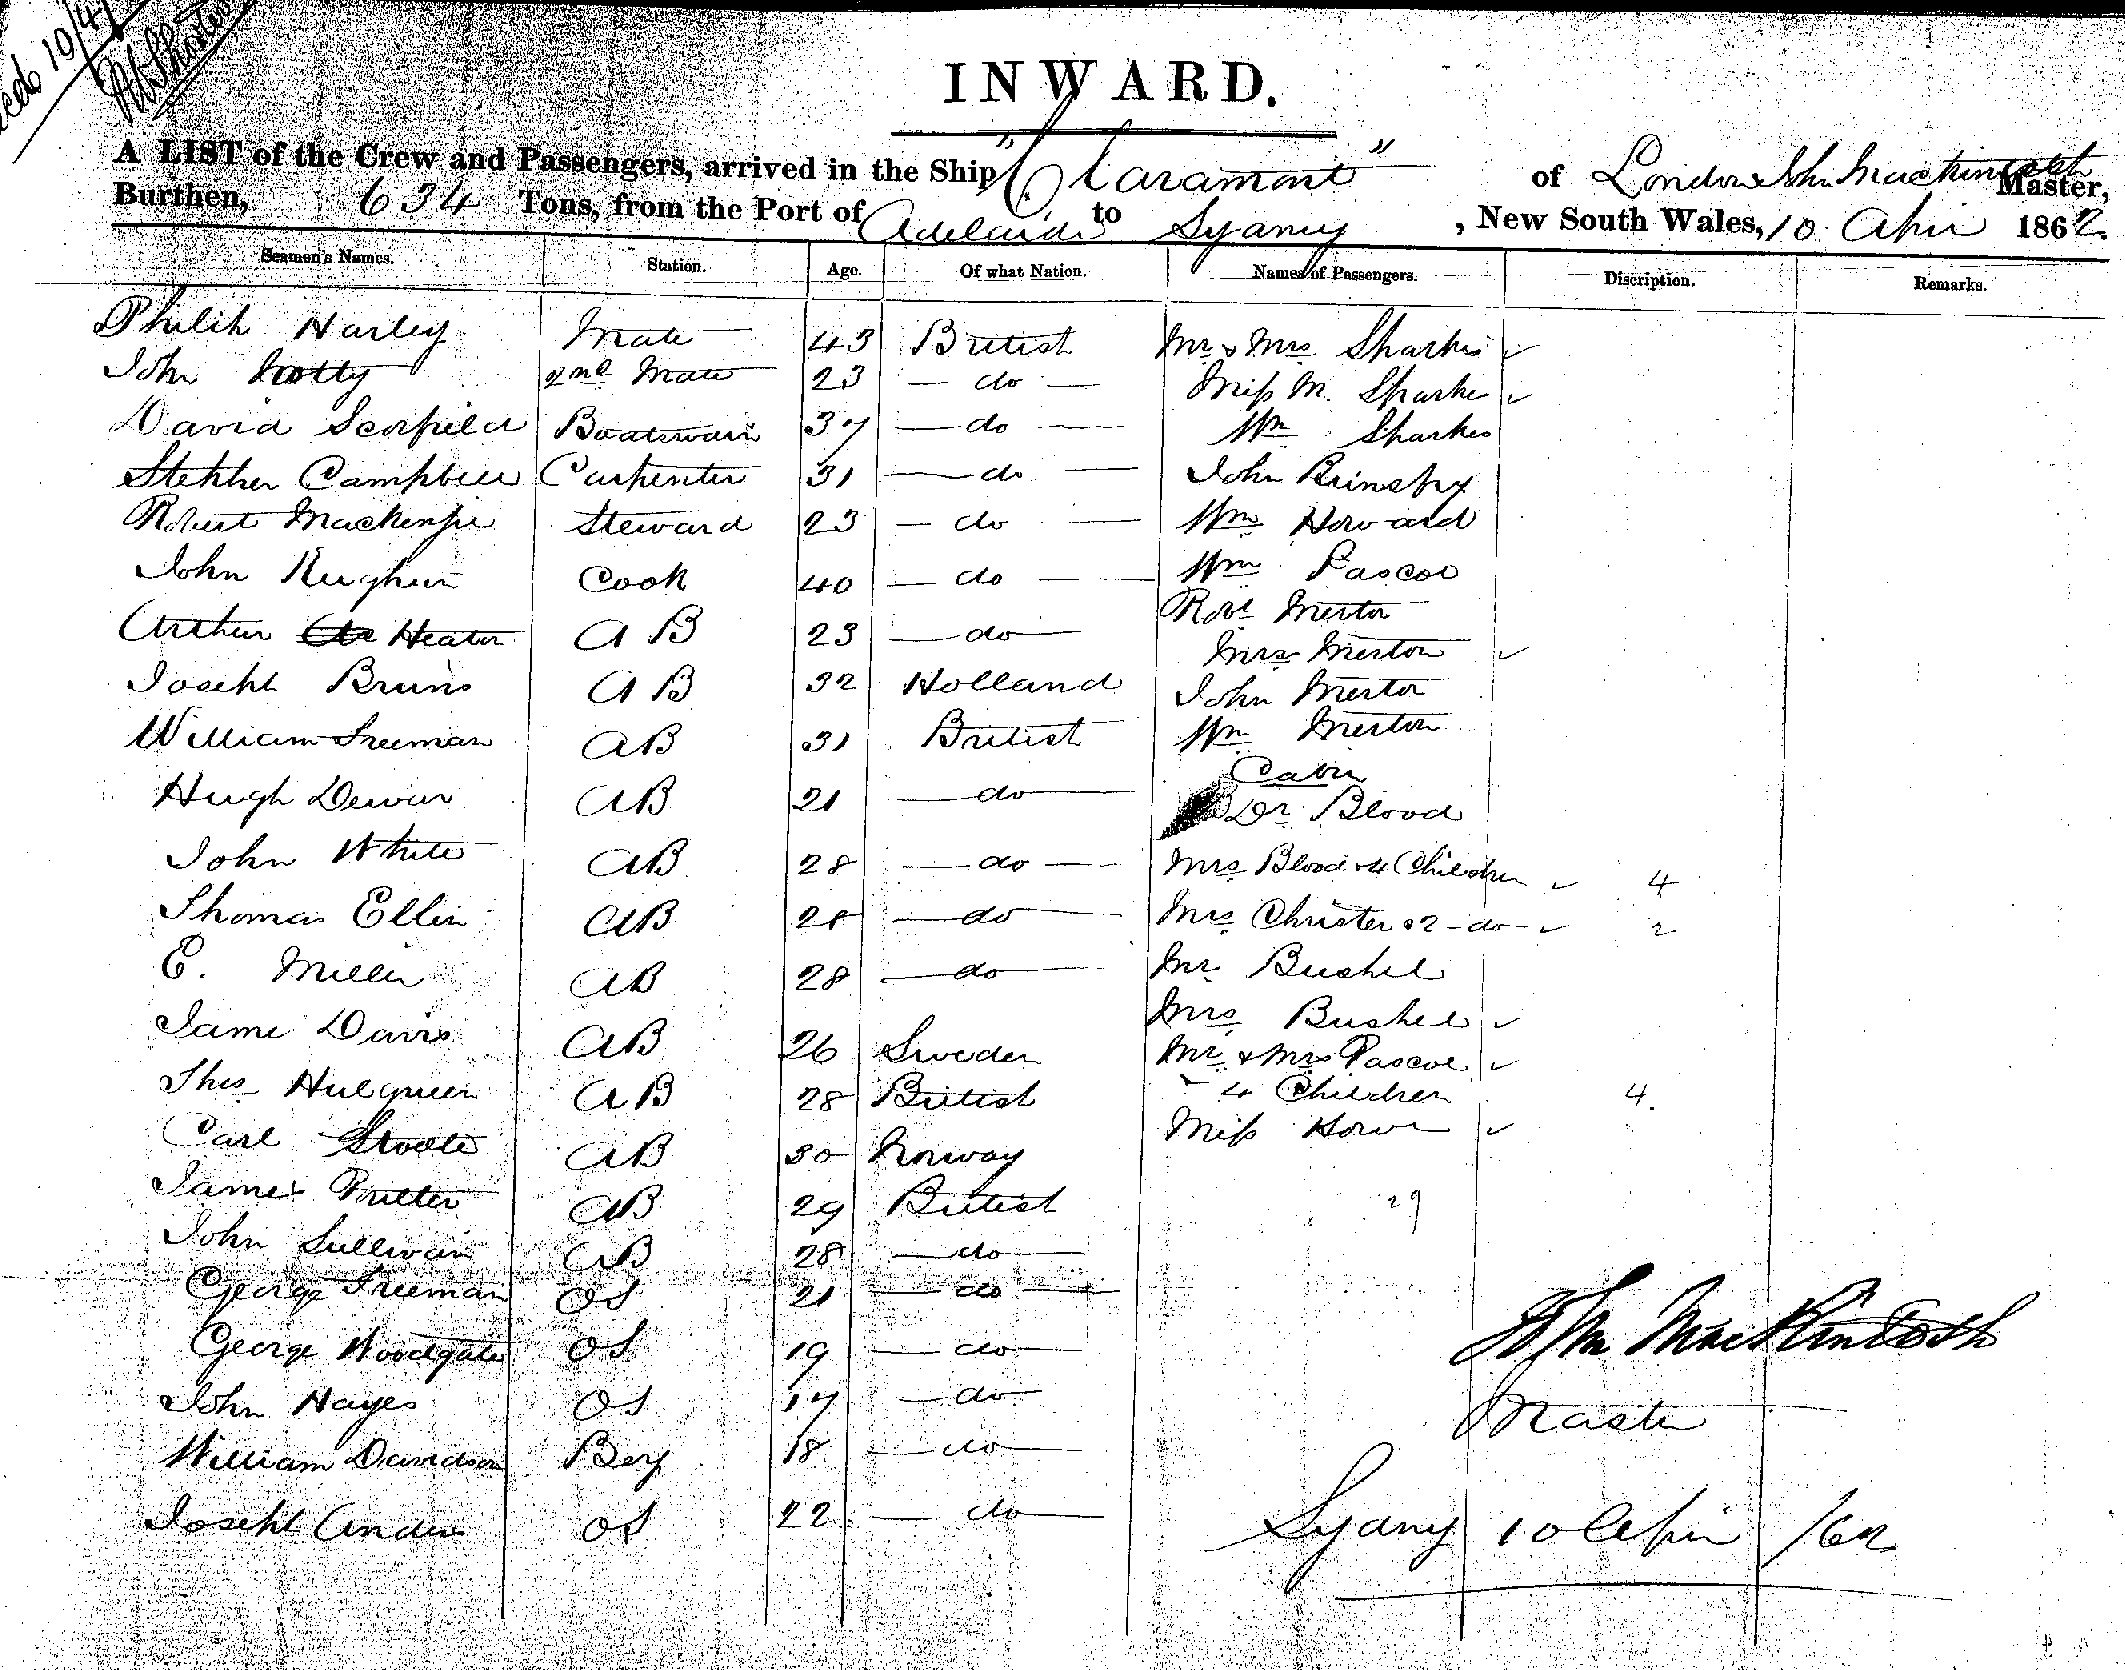 10/4
INWARD.
A LIST of the Crew and Passengers, arrived in the Ship "Claramont" of London John Mackintosh Master,
Burthen, 634 Tons, from the Port of Adelaide to Sydney, New South Wales, 10 April 1862.
Seamen's Names. Station. Age. Of what Nation. Names of Passengers. Discription. Remarks.
Philip Harley Mate 43 British Mr & Mrs Sharkes ✓
John 2nd Mate 23 — do — Miss M. Sharke ✓
David Scorfield Boatswain 37 — do — Wm Sharkes
Stephen Campbell Carpenter 31 — do — John
Robert Mackenzie Steward 23 — do — Wm Howard
John Cook 40 — do — Wm Pascoe
Robt Merton
Arthur Heator A B 23 — do — Mrs Merton ✓
Joseph Bruns A B 32 Holland John Merton
William Freeman AB 31 British Wm Merton
Cabin
Hugh Dewar AB 21 — do — Dr Blood
John White AB 28 — do — Mrs Blood & 4 Children ✓ 4
Thomas Ellin AB 28 — do — Mrs Christer & 2 - do - ✓ 2
E. Miller AB 28 — do — Mr Bushel
Mrs Bushel ✓
Jame Davis AB 26 Sweden Mr & Mrs Pascoe ✓
Thos Hulgreen AB 28 British 4 Children 4.
Carl AB 30 Norway Miss Howe ✓
James AB 29 British 29
John Sullivan AB 28 — do —
George Freeman OS 21 — do —
George Woodgate OS 19 — do —
John Hayes OS 17 — do —
William Davidson Boy 18 — do —
Joseph OS 22 — do —
John MacKintosh
Master
Sydney 10 April /62